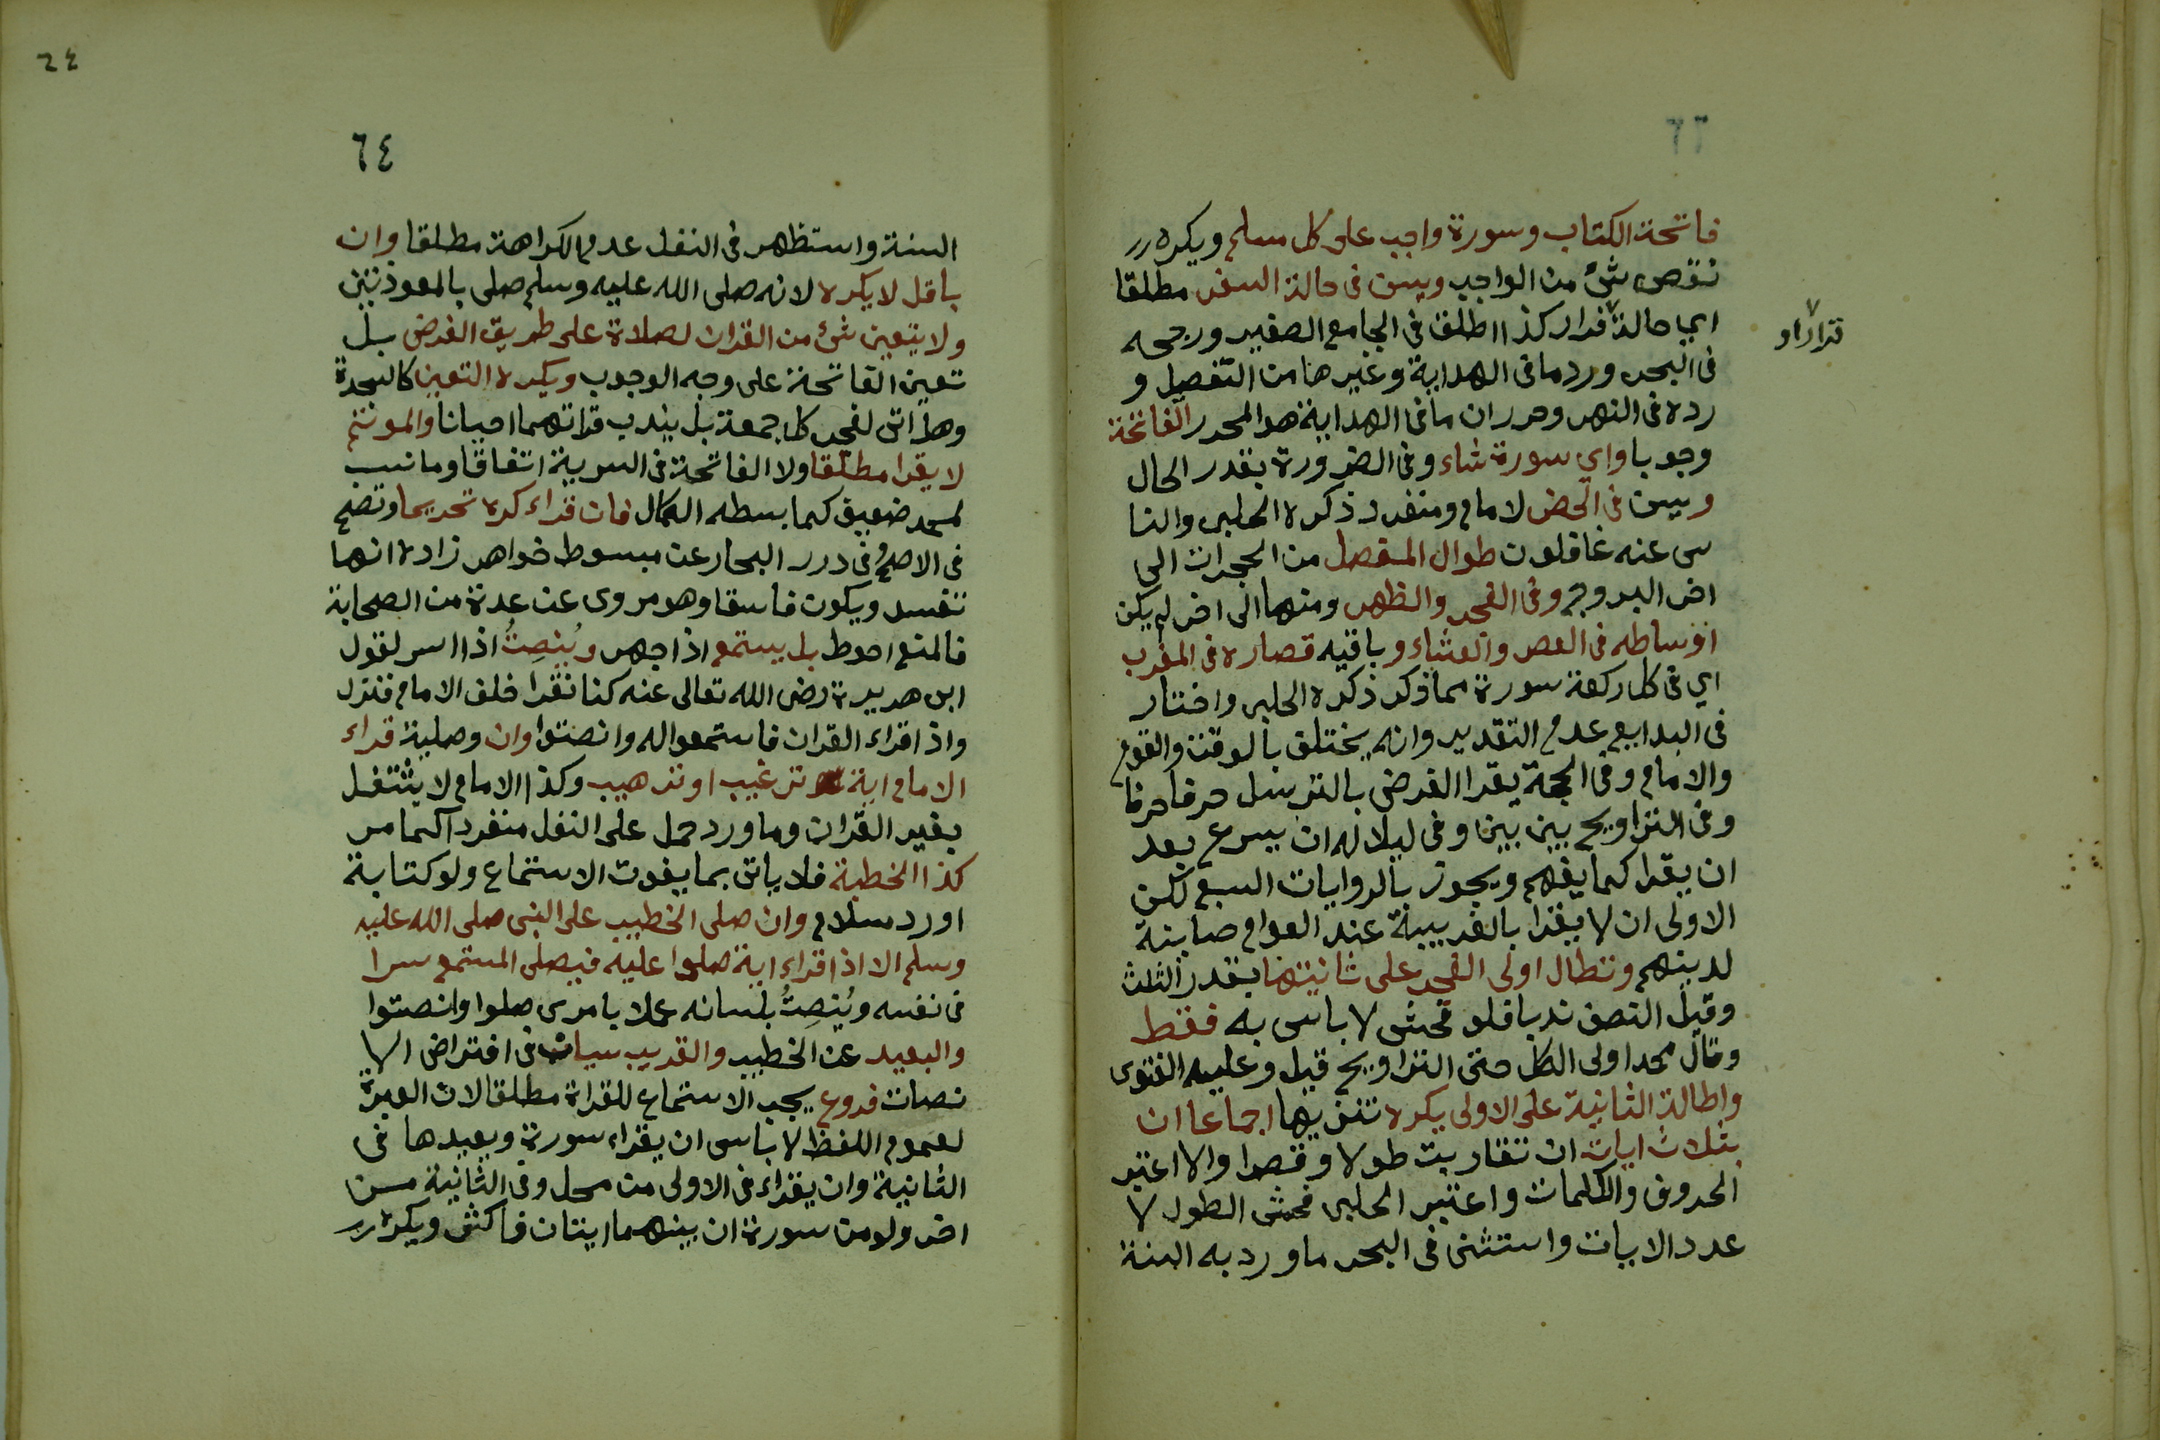 فاتحة الكتاب وسورة واجب على كل مسلم ويكره
نقص شئ من الواجب ويسن في حالة السفر مطلقا
اي حالة قرار كذا اطلق في الجامع الصغير ورجحه
قرار او
في البحر ورد ما في الهداية وغيرها من التفصيل و
رده في النهر وحرر ان ما في الهداية هو المحرر الفاتحة
وجوبا واي سورة شاء وفي الضرورة بقدر الحال
ويسن في الحضر لامام ومنفرد ذكره الحلبي والنا
س عنه غافلون طوال المفصل من الحجرات الى
اخر البروج وفي الفجر والظهر ومنها الى اخر لم يكن
اوساطه في العصر والعشاء وباقيه قصاره في المغرب
اي في كل ركعة سورة مما ذكر ذكره الحلبي واختار
في البدايع عدم التقدير وانه يختلف بالوقت والقوم
والامام وفي الحجة يقرا الفرض بالترسل حرفا حرفا
وفي التراويح بين بين وفي ليلا له ان يسرع بعد
ان يقرا كما يفهم ويجوز بالروايات السبع لكن
الاولى ان لا يقرا بالغريبة عند العوام صاينة
لدينهم وتطال اولى الفجر على ثانيتها بقدر الثلث
وقيل النصف ندبا فلو فحش لا باس به فقط
وقال محمد اولى الكل حتى التراويح قيل وعليه الفتوى
واطالة الثانية على الاولى يكره تنزيها اجماعا ان
بثلاث ايات ان تقاربت طولا وقصرا والا اعتبر
الحروف والكلمات واعتبر الحلبي فحش الطول لا
عدد الايات واستثنى في البحر ما ورد به السنة
٢٤
٦٤
السنة واستظهر في النفل عدم الكراهة مطلقا وان
باقل لا يكره لانه صلى الله عليه وسلم صلى بالمعوذتين
ولا يتعين شئ من القران لصلاة على طريق الفرض بل
تعين الفاتحة على وجه الوجوب ويكره التعين كالسجدة
وهل اتى لفجر كل جمعة بل يندب قراتهما احيانا والموتم
لا يقرا مطلقا ولا الفاتحة في السرية اتفاقا وما نسب
لمحمد ضعيف كما بسطه الكمال فان قراء كره تحريما وتصح
في الاصح وفي درر البحار عن مبسوط خواهر زاده انها
تفسد ويكون فاسقا وهو مروى عن عدة من الصحابة
فالمنع احوط بل يستمع اذا جهر ويُنصِتُ اذا اسر لقول
ابى هريرة رضى الله تعالى عنه كنا نقرا خلف الامام فنزل
واذا قراء القران فاستمعوا له وانصتوا وان وصلية قراء
الامام اية ترغيب او ترهيب وكذا الامام لا يشتغل
بغير القران وما ورد حمل على النفل منفردا كما مر
كذا الخطبة فلا ياتى بما يفوت الاستماع ولو كتابة
او رد سلام وان صلى الخطيب على النبى صلى الله عليه
وسلم الا اذا قراء اية صلوا عليه فيصلى المستمع سرا
في نفسه ويُنصِتُ بلسانه عملا بامرى صلوا وانصتوا
والبعيد عن الخطيب والقريب سيان في افتراض الا
نصات فروع يجب الاستماع للقراة مطلقا لان العبرة
لعموم اللفظ لا باس ان يقراء سورة ويعيدها في
الثانية وان يقراء في الاولى من محل وفي الثانية من
اخر ولو من سورة ان بينهما ايتان فاكثر ويكره